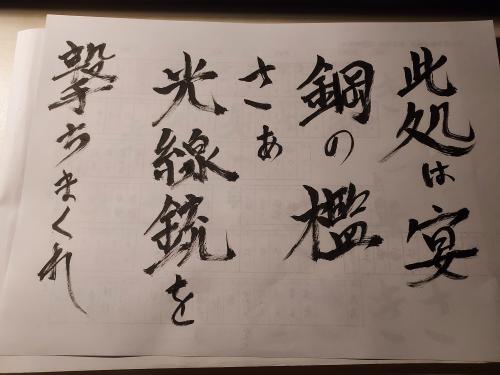 此処は宴
鋼の檻
さぁ
光線銃を
撃ちまくれ